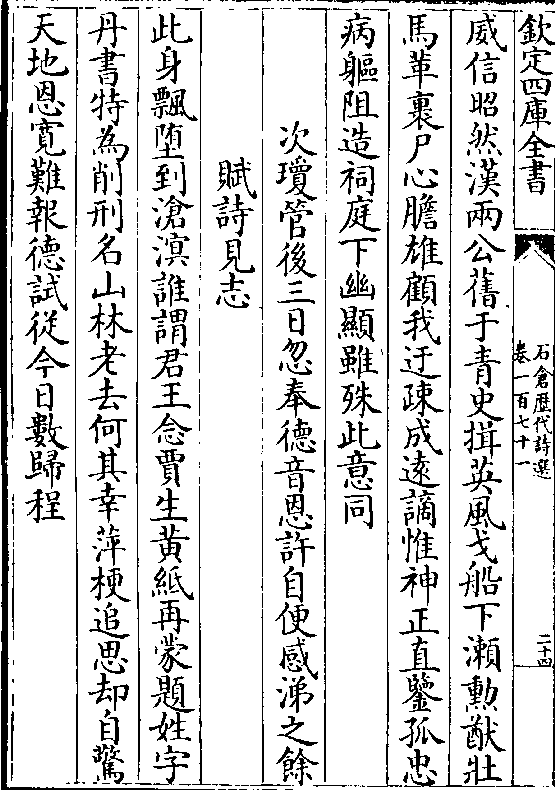 欽定四庫全書
石倉歴代詩選
卷一百七十一
二十四
威信昭然漢兩公舊于青史揖英風戈船下瀨勲猷壯
馬革裹尸心膽雄顧我迂疎成逺謫惟神正直鑒孤忠
病軀阻造祠庭下幽顯雖殊此意同
次瓊管後三日忽奉德音恩許自便感涕之餘
賦詩見志
此身飄堕到滄溟誰謂君王念賈生黄紙再蒙題姓字
丹書特為削刑名山林老去何其幸萍梗追思却自驚
天地恩寛難報德試從今日數歸程